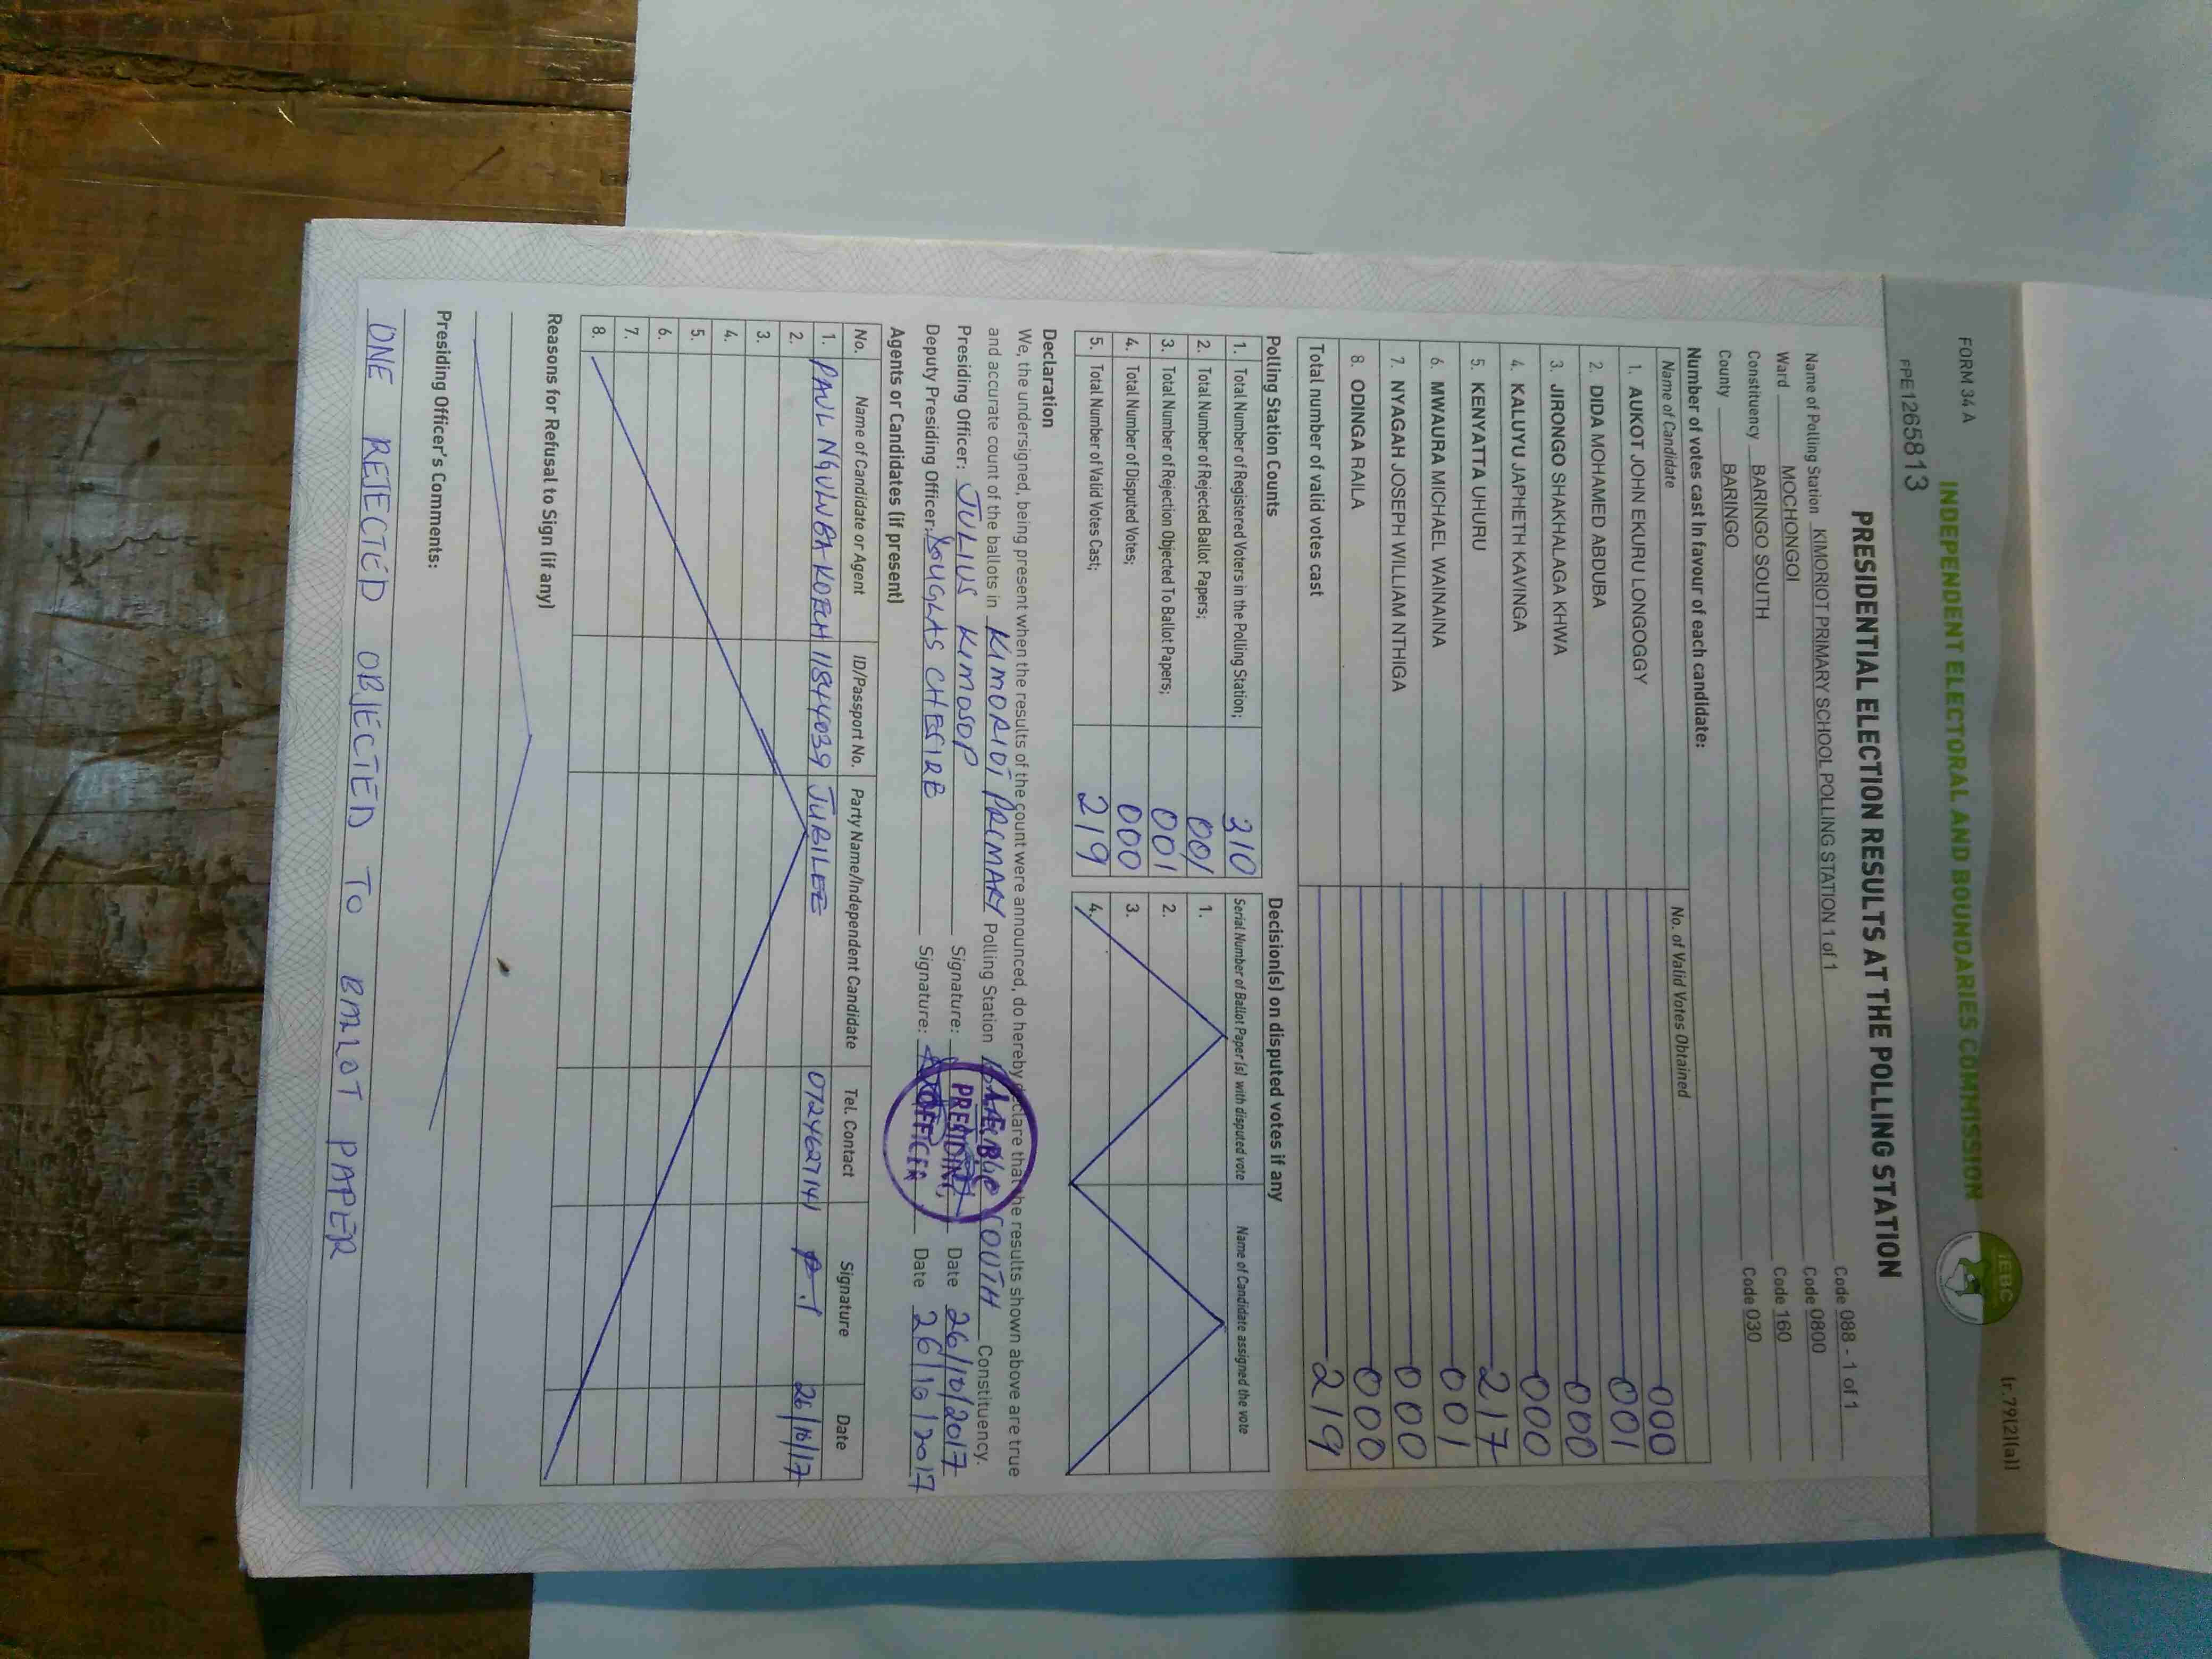 FORM 34 A
(r.79(2)(a))
INDEPENDENT ELECTORAL AND BOUNDARIES COMMISSION
IEBC
FPE1265813
PRESIDENTIAL ELECTION RESULTS AT THE POLLING STATION
Name of Polling Station KIMORIOT PRIMARY SCHOOL POLLING STATION 1 of 1 Code 088 - 1 of 1
Ward MOCHONGOI Code 0800
Constituency BARINGO SOUTH Code 160
County BARINGO Code 030
Number of votes cast in favour of each candidate:
Name of Candidate No. of Valid Votes Obtained
1. AUKOT JOHN EKURU LONGOGGY 000
2. DIDA MOHAMED ABDUBA 001
3. JIRONGO SHAKHALAGA KHWA 000
4. KALUYU JAPHETH KAVINGA 000
5. KENYATTA UHURU 217
6. MWAURA MICHAEL WAINAINA 001
7. NYAGAH JOSEPH WILLIAM NTHIGA 000
8. ODINGA RAILA 000
Total number of valid votes cast 219
Polling Station Counts
1. Total Number of Registered Voters in the Polling Station; 310
2. Total Number of Rejected Ballot Papers; 001
3. Total Number of Rejection Objected To Ballot Papers; 001
4. Total Number of Disputed Votes; 000
5. Total Number of Valid Votes Cast; 219
Decision(s) on disputed votes if any
Serial Number of Ballot Paper (s) with disputed vote Name of Candidate assigned the vote
1.
2.
3.
4.
Declaration
We, the undersigned, being present when the results of the count were announced, do hereby declare that the results shown above are true
and accurate count of the ballots in KIMORIOT PRIMARY Polling Station SOUTH Constituency.
Presiding Officer: JULIUS KIMOSOP Signature: Date 26/10/2017
Deputy Presiding Officer: DOUGLAS Signature: Date 26/10/2017
PRESIDING
OFFICER
Agents or Candidates (if present)
No. Name of Candidate or Agent ID/Passport No. Party Name/Independent Candidate Tel. Contact Signature Date
1. PAUL KOECH 11844039 JUBILEE 0724627141 26/10/17
2.
3.
4.
5.
6.
7.
8.
Reasons for Refusal to Sign (if any)
Presiding Officer's Comments:
ONE REJECTED OBJECTED TO BALLOT PAPER